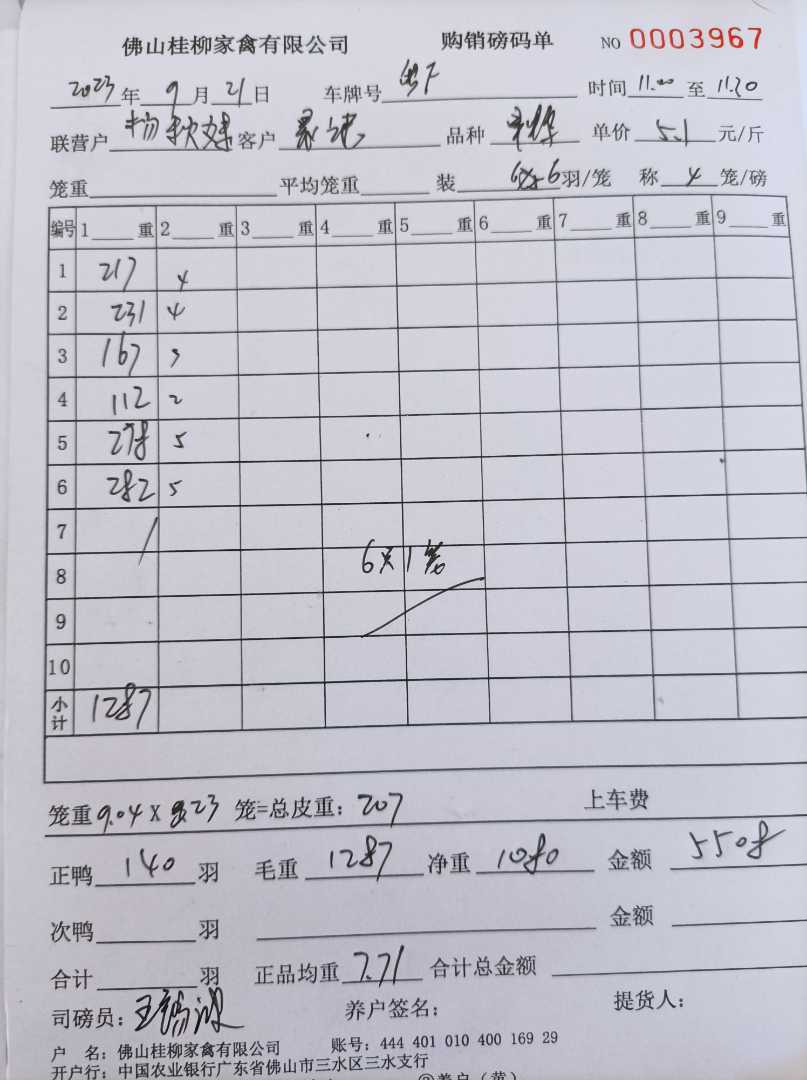 佛山桂柳家禽有限公司 购销磅码单 NO 0003967
2023年9月21日 车牌号 时间11.00至11.20
联营户 杨 客户 品种 单价5.1元/斤
笼重 平均笼重 装6羽/笼 称4笼/磅
编号 1 重 2 重 3 重 4 重 5 重 6 重 7 重 8 重 9 重
1 217 4
2 231 4
3 167 3
4 112 2
5 278 5
6 282 5
7 /
8 6只1笼
9
10
小计 1287
笼重9.04X23 笼=总皮重：207 上车费
正鸭140羽 毛重1287 净重1080 金额5508
次鸭 羽 金额
合计 羽 正品均重7.71 合计总金额
司磅员：王 波 养户签名： 提货人：
户 名：佛山桂柳家禽有限公司 账号：444 401 010 400 169 29
开户行：中国农业银行广东省佛山市三水区三水支行
②养户（黄）